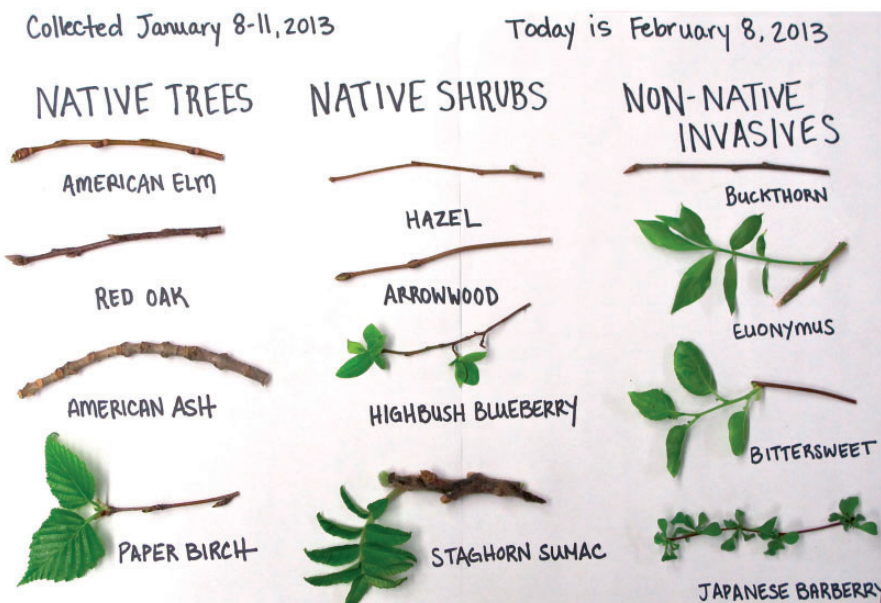 Collected January 8-11, 2013
Today is February 8, 2013
NATIVE TREES
AMERICAN ELM
RED OAK
AMERICAN ASH
PAPER BIRCH
NATIVE SHRUBS
HAZEL
ARROWWOOD
HIGHBUSH BLUEBERRY
STAGHORN SUMAC
NON-NATIVE
INVASIVES
BUCKTHORN
EUONYMUS
BITTERSWEET
JAPANESE BARBERRY